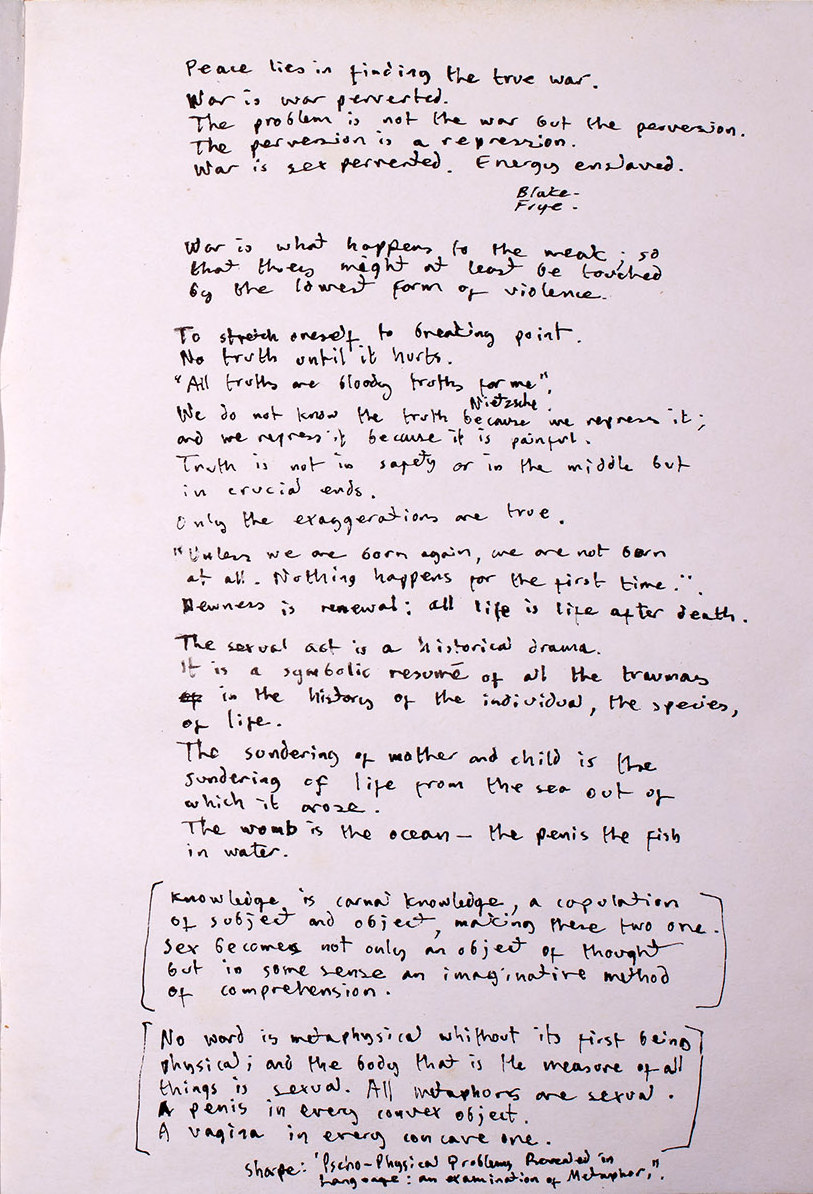 Peace lies in finding the true war.
War is war perverted.
The problem is not the war but the perversion.
The perversion is a repression.
War is sex perverted. Energy enslaved.
Blake-
Frye-
War is what happens to the weak; so
that they might at least be touched
by the lowest form of violence.
To stretch oneself to breaking point.
No truth until it hurts.
"All truths are bloody truths for me".
Nietzsche.
We do not know the truth because we repress it;
and we repress it because it is painful.
Truth is not in safety or in the middle but
in crucial ends.
Only the exaggerations are true.
"Unless we are born again, we are not born
at all. Nothing happens for the first time.".
Newness is renewal: all life is life after death.
The sexual act is a historical drama.
It is a symbolic resumé of all the traumas
of in the history of the individual, the species,
of life.
The sundering of mother and child is the
sundering of life from the sea out of
which it arose.
The womb is the ocean — the penis the fish
in water.
Knowledge is carnal knowledge, a copulation
of subject and object, making these two one.
Sex becomes not only an object of thought
but in some sense an imaginative method
of comprehension.
No word is metaphysical whithout its first being
physical; and the body that is the measure of all
things is sexual. All metaphors are sexual.
A penis in every convex object.
A vagina in every concave one.
Sharpe: "Pscho-Physical Problems Revealed in
Language: an examination of Metaphor,".